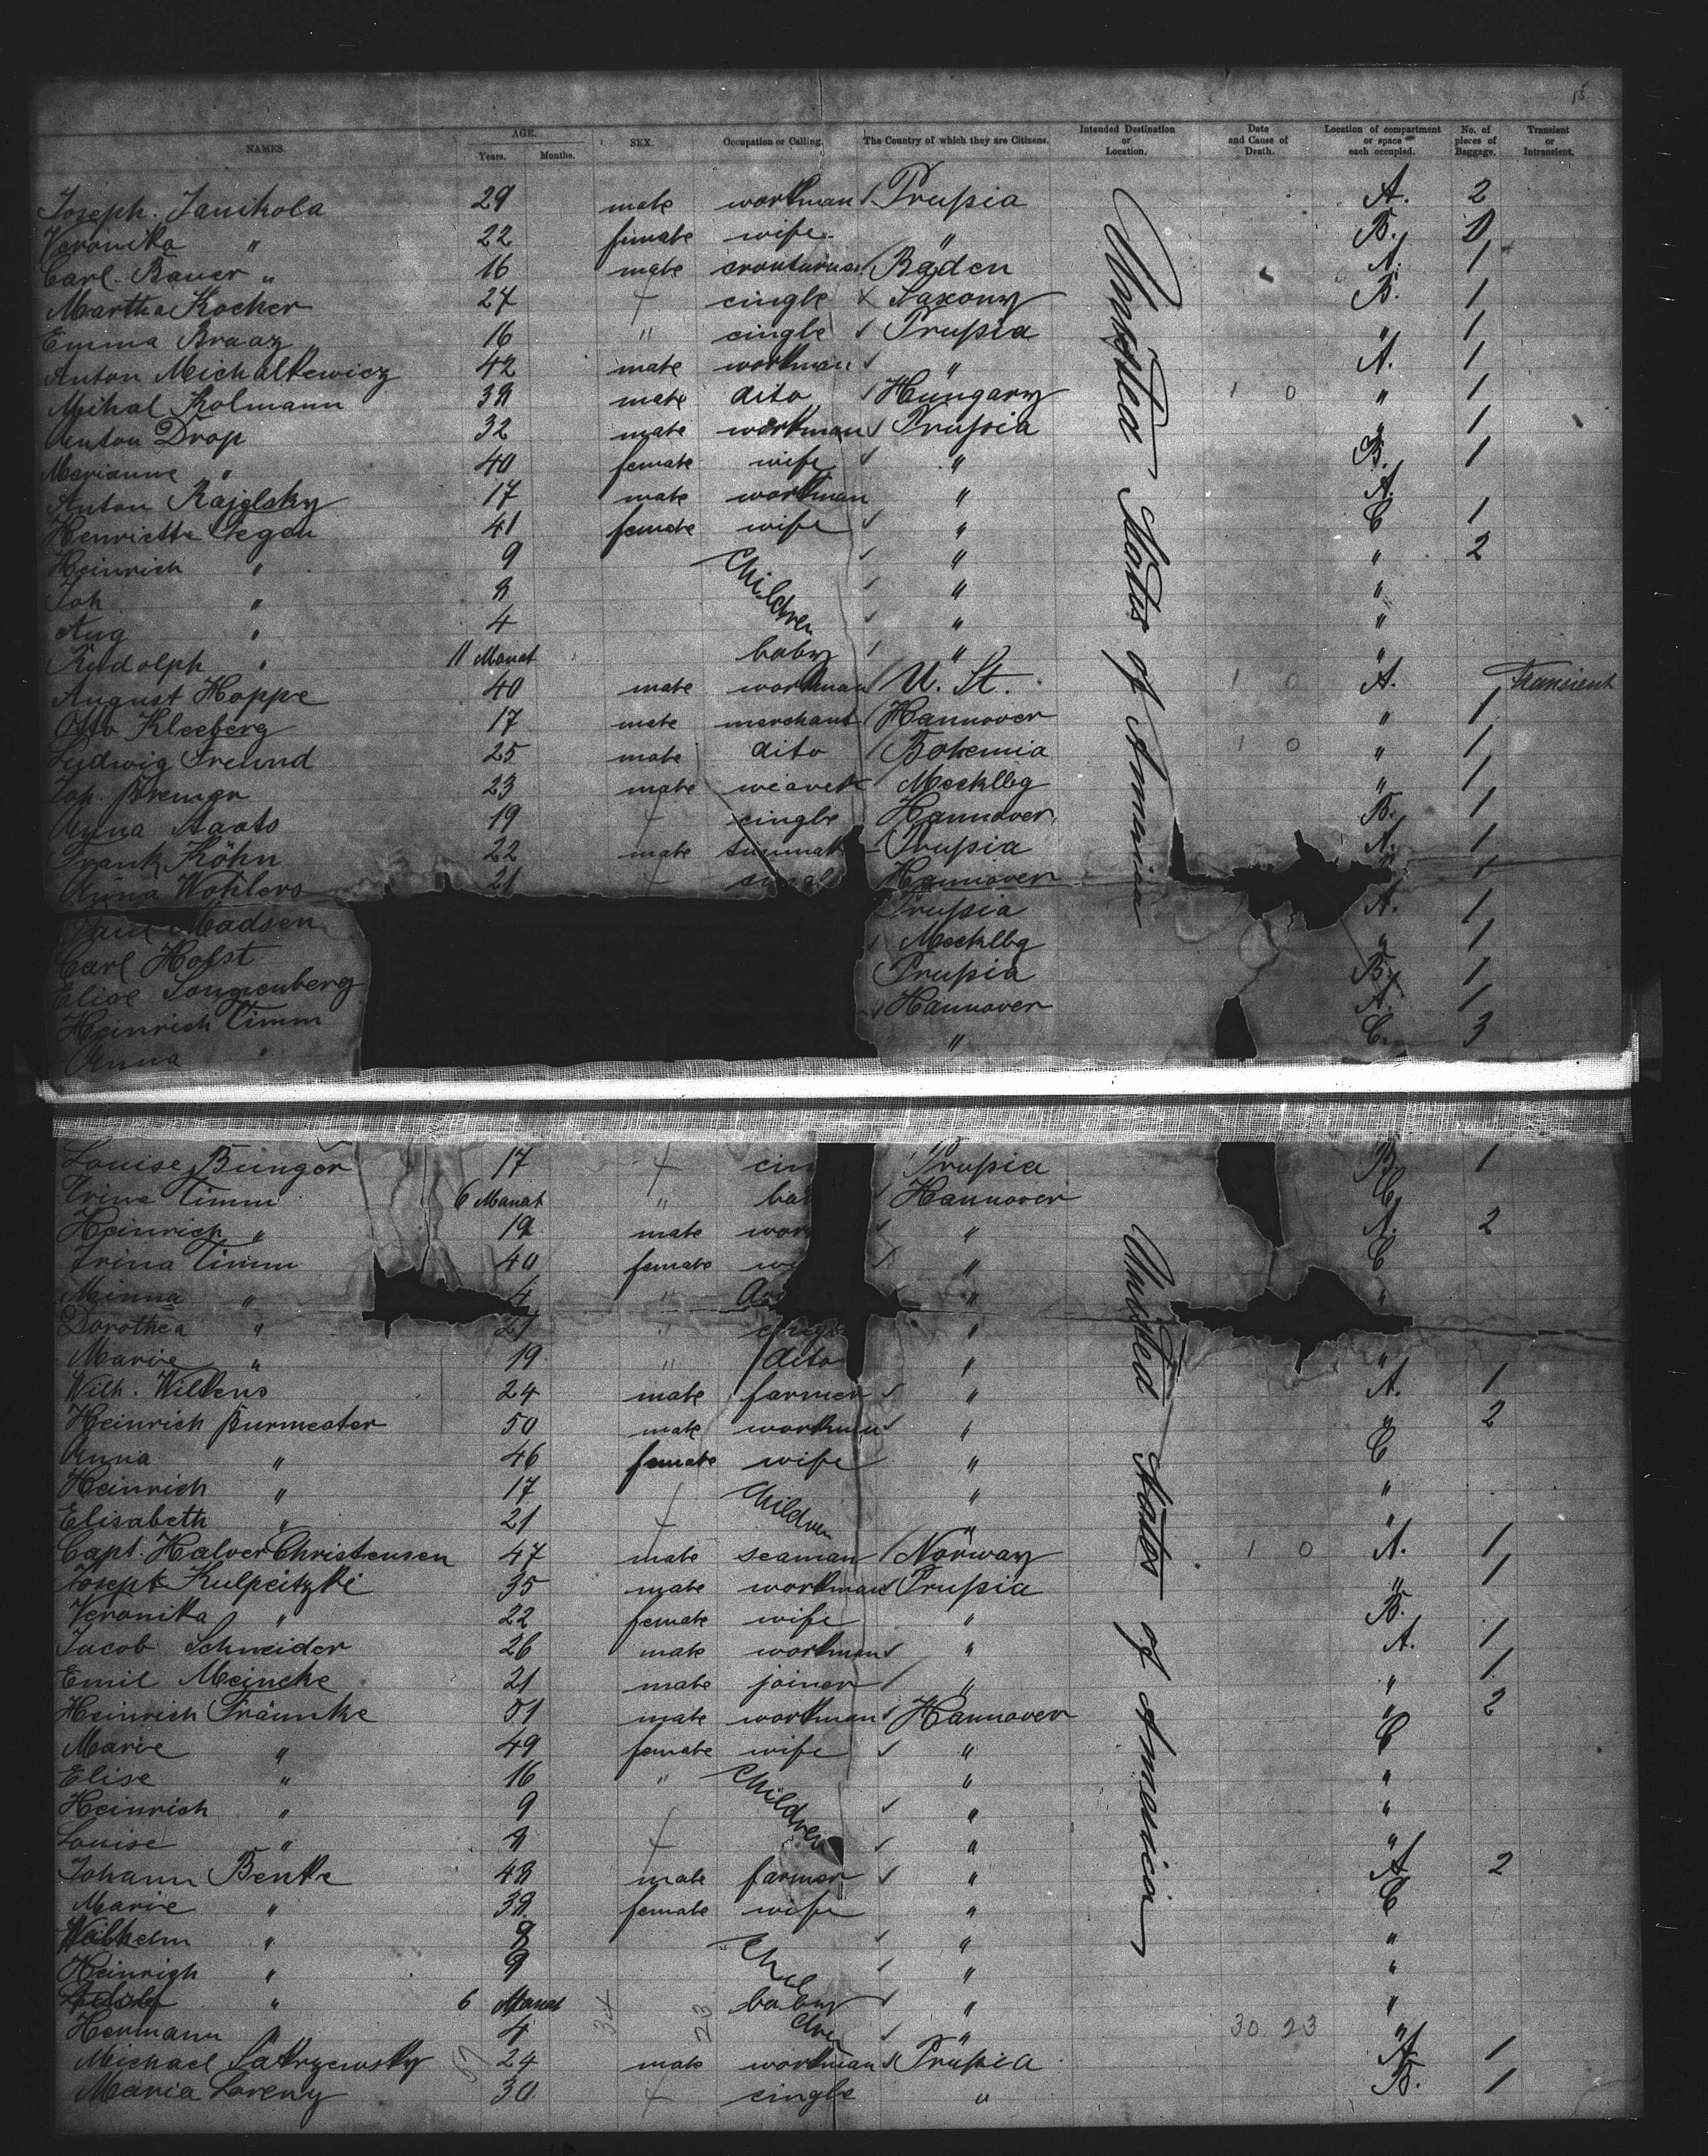 18
NAMES. AGE. Years. Months. SEX. Occupation or Calling. The Country of which they are Citizens. Intended Destination or Location. Date and Cause of Death. Location of compartment or space each occupied. No. of pieces of Baggage. Transient or Intransient.
Joseph. Janikola 29 male workman Prussia A. 2
Veronika " 22 female wife " B.
Carl. Bauer " 16 male Baden A. 1
Martha Kocher 24 cingle Saxony B. 1
Emma Braaz 16 " cingle Prussia " 1
Anton Michalkewicz 42 male workman " A. 1
Mihal Kolmann 38 male dito Hungary 1 0 " 1
Anton Drop 32 male workman Prussia " 1
Marianne " 40 female wife " B. 1
Anton Rajelsky 17 male workman " A.
Henriette Gegen 41 female wife " C 1
Heinrich " 9 Children " " 2
Joh " 8 " "
Aug " 4 " "
Rudolph " 11 Monat baby " "
August Hoppe 40 male workman U. St. 1 0 A. Transient
Otto Kleeberg 17 male merchant Hannover " 1
Ludwig Freund 25 male dito Bohemia 1 0 " 1
Joh. Bremer 23 male weaver Mecklbg " 1
Anna Staats 19 cingle Hannover B. 1
Frank Köhn 22 male Prussia A. 1
Anna Wohlers 21 Hannover 1
Paul Madsen Prussia A. 1
Carl Holst Mecklbg " 1
Elise Prussia B. 1
Heinrich Timm Hannover A. 1
Anna " " C. 3
United States of America
Louise Bünger 17 cin Prussia B. 1
Trina Timm 6 Monat " ba Hannover C
Heinrich " 19 male wor " A. 2
Trina Timm 40 female wi " C
Minna " 4 " " "
Dorothea " 21 " cingle "
Marie " 19 " dito " "
Wilh. Wilkens 24 male farmer " A. 1
Heinrich Burmester 50 male workman " " 2
Anna " 46 female wife " C
Heinrich " 17 Children " "
Elisabeth " 21 " "
Capt. Halver Christensen 47 male seaman Norway 1 0 A. 1
Joseph Kulpeitzki 35 male workman Prussia " 1
Veronika " 22 female wife " B.
Jacob Schneider 26 male workman " A. 1
Emil Meincke 21 male joiner " " 1
Heinrich Framke 51 male workman Hannover " 2
Marie " 49 female wife " C
Elise " 16 " Children " "
Heinrich " 9 " "
Louise " 8 " "
Johann Benke 48 male farmer " A 2
Marie " 38 female wife " C
Wilhelm " 8 " "
Heinrich " 9 " "
" 6 Monat baby " "
Hermann " 4 " 30 23 "
Michael Satrzewsky 24 male workman Prussia A 1
Maria Lorenz 30 cingle " B. 1
United States of America